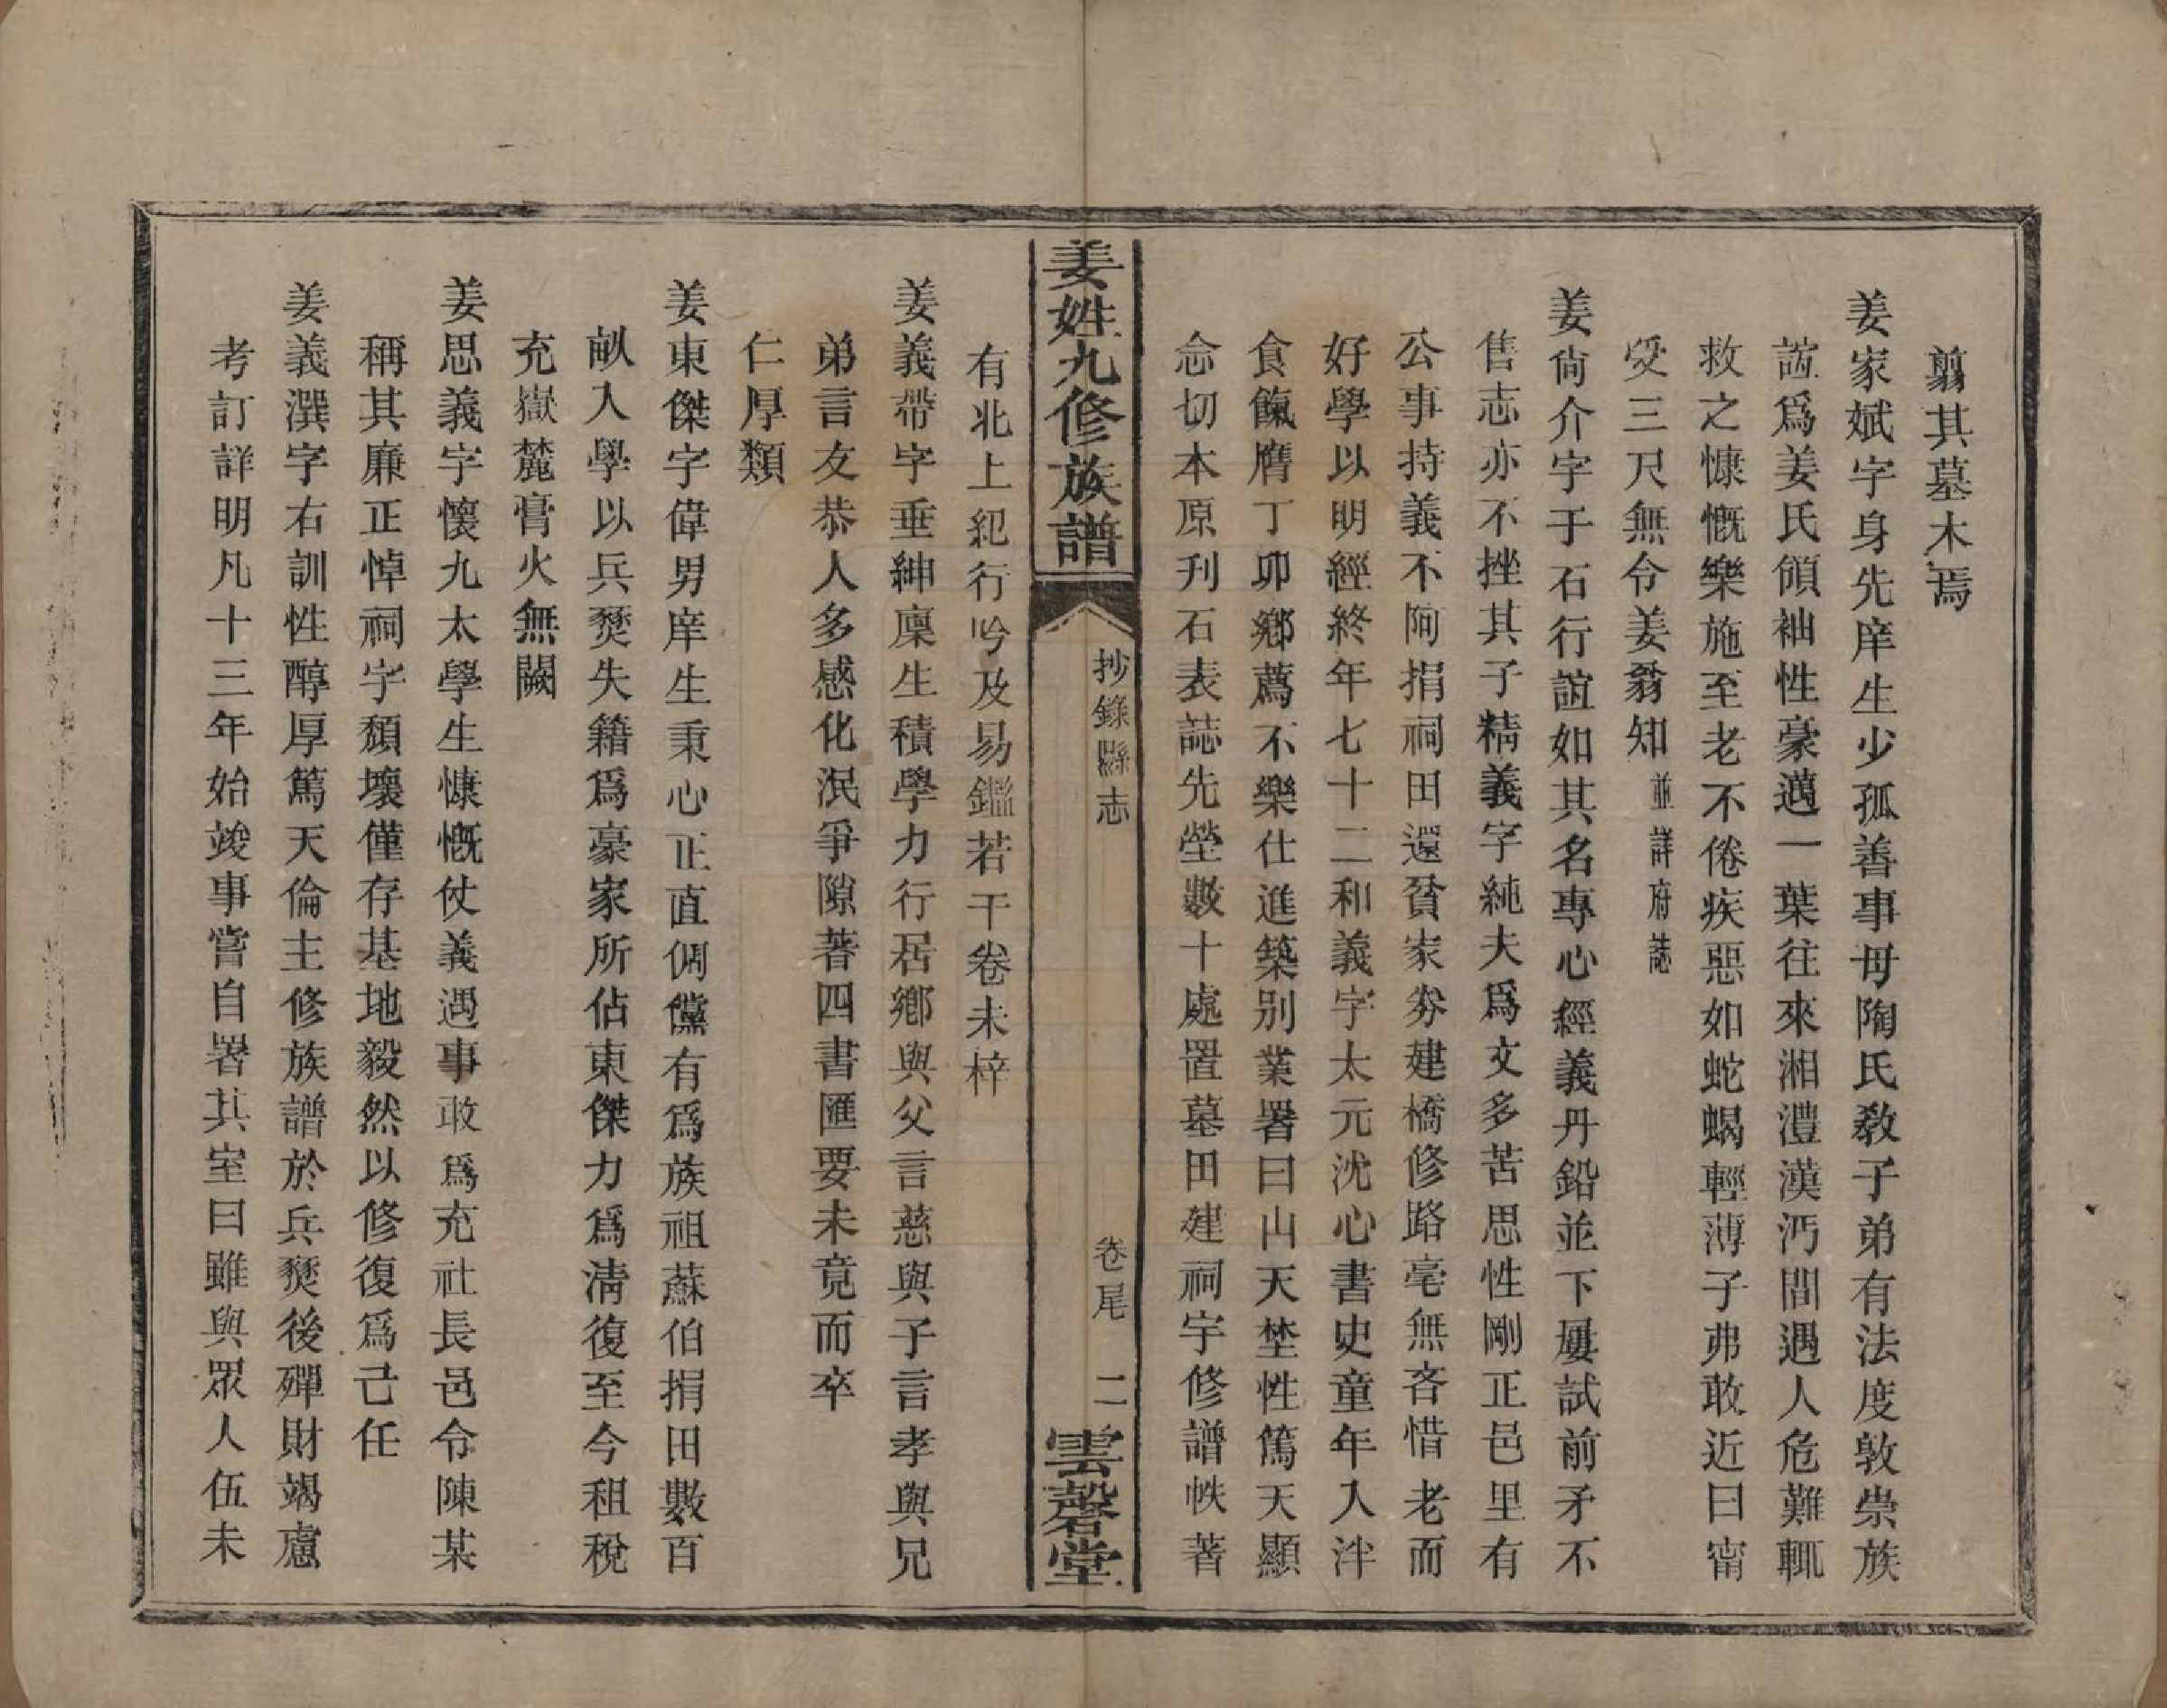 翦其墓木焉
姜家斌字身先庠生少孤善事母陶氏敎子弟有法度敦崇族
誼爲姜氏領袖性豪邁一葉往來湘澧漢沔間遇人危難輒
救之慷慨樂施至老不倦疾惡如蛇蝎輕薄子弗敢近曰甯
受三尺無令姜翁知並詳府誌
姜尙介字于石行誼如其名專心經義丹鉛並下屢試前矛不
售志亦不挫其子精義字純夫爲文多苦思性剛正邑里有
公事持義不阿捐祠田還貧家券建橋修路毫無吝惜老而
好學以明經終年七十二和義字太元沈心書史童年入泮
食餼膺丁卯鄉薦不樂仕進築别業署曰山天埜性篤天顯
念切本原刋石表誌先塋數十處置墓田建祠宇修譜帙著
姜姓九修族譜
抄錄縣志
卷尾
二
雲磬堂
有北上紀行吟及易鑑若干卷未梓
姜義帶字垂紳廩生積學力行居鄉與父言慈與子言孝與兄
弟言友恭人多感化泯爭隙著四書匯要未竟而卒
仁厚類
姜東傑字偉男庠生秉心正直倜儻有爲族祖蘇伯捐田數百
畝入學以兵燹失籍爲豪家所佔東傑力爲淸復至今租稅
充嶽麓膏火無闕
姜思義字懷九太學生慷慨仗義遇事敢爲充社長邑令陳某
稱其廉正悼祠宇頹壞僅存基地毅然以修復爲己任
姜義潠字右訓性醇厚篤天倫主修族譜於兵燹後殫財竭慮
考訂詳明凡十三年始竣事嘗自署其室曰雖與眾人伍未